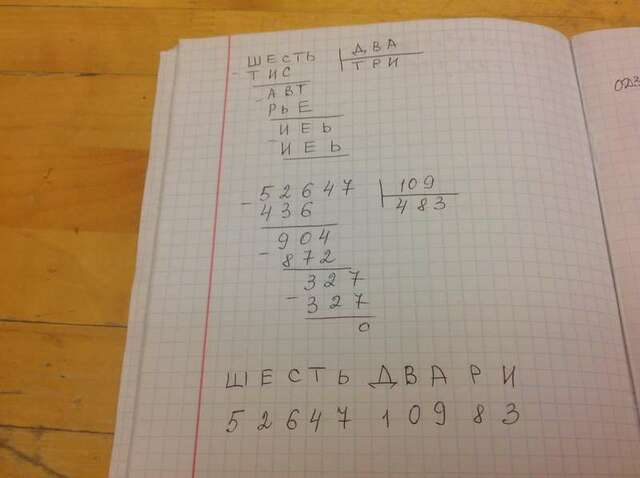 ШЕСТЬ ДВА
- ТИС ТРИ
АВТ
- РЬЕ
ИЕЬ
- ИЕЬ
52647 109
- 436 483
904
- 872
327
- 327
0
ШЕСТЬ ДВА РИ
52647 109 83